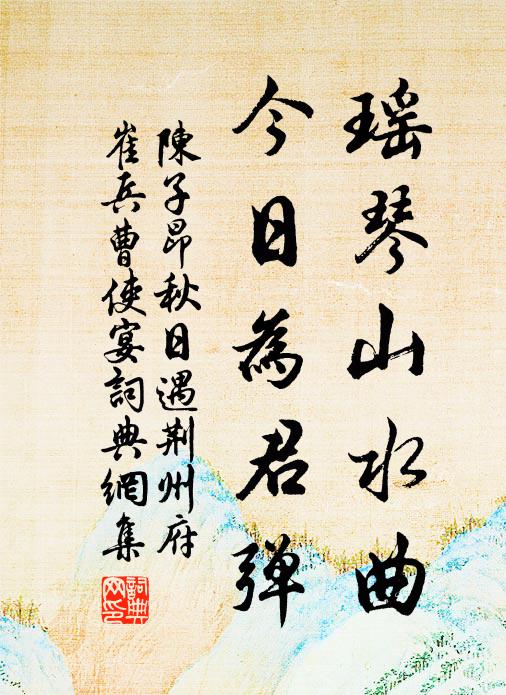 瑶琴山水曲
今日為君弹
陳子昂秋日遇荆州府
崔兵曹使宴詞典網集
詞典
网印